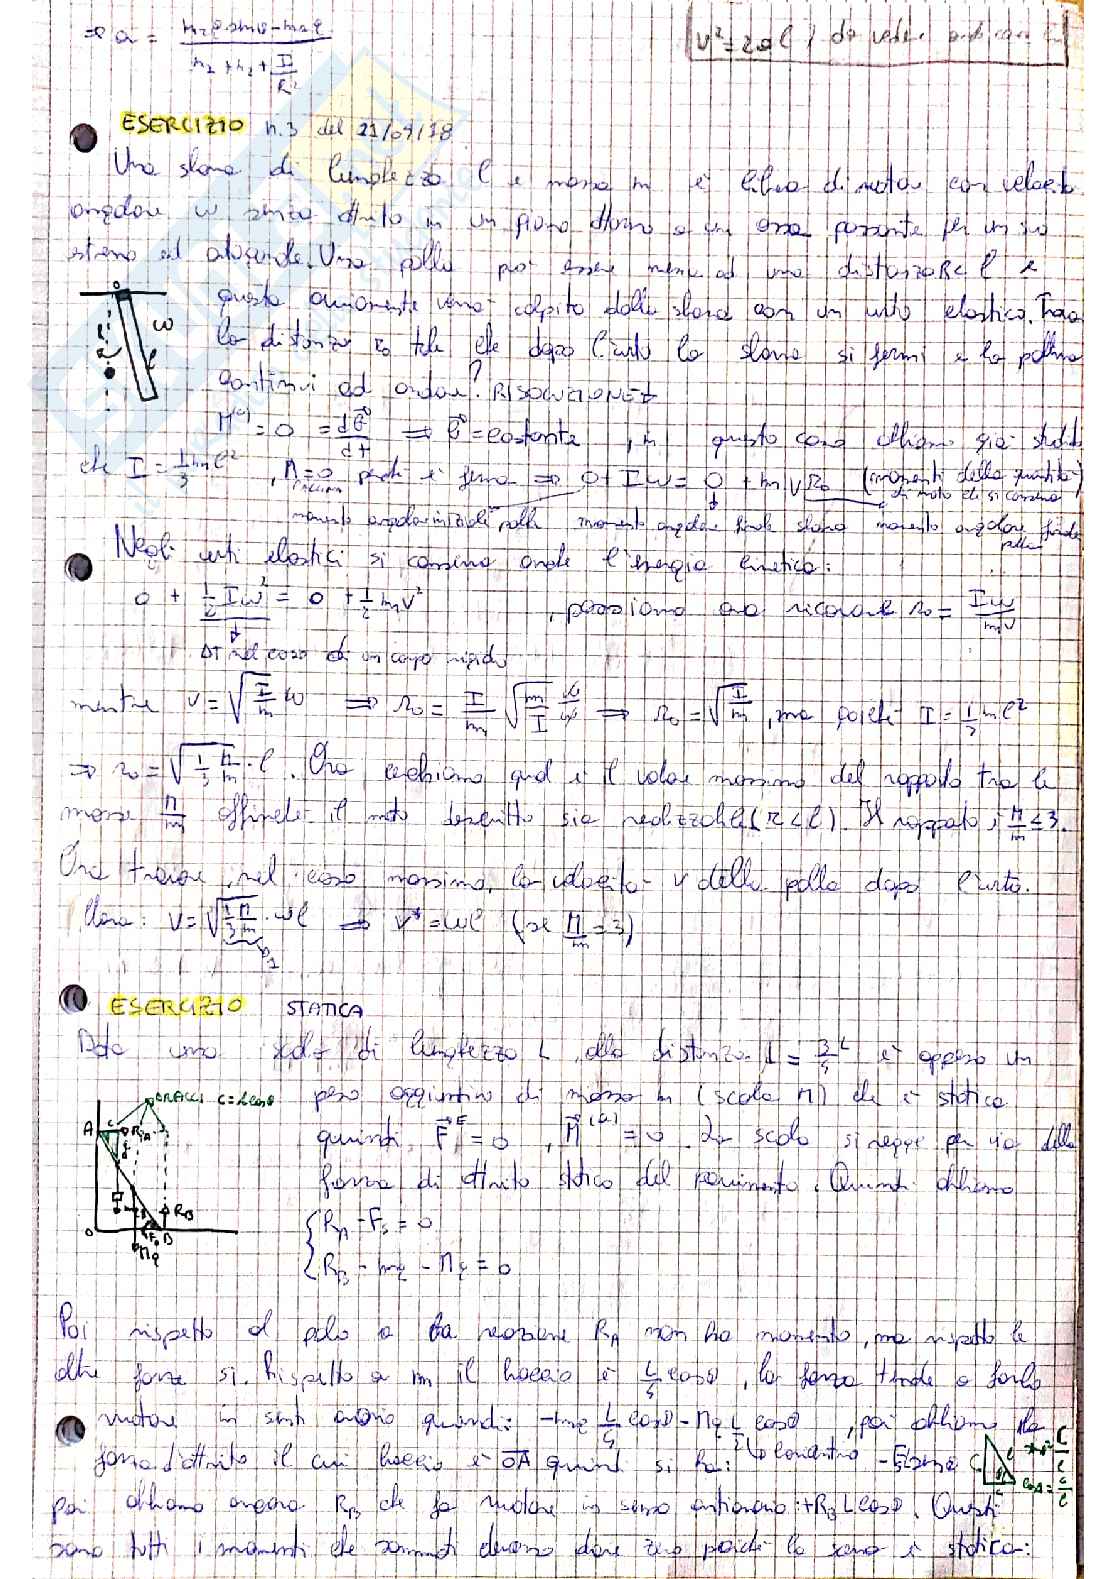 ⇒ a = m2 g sinθ - m1 g / m1 + m2 + I/R²
V² = 2al } da vedere
ESERCIZIO n.3 del 21/04/18
Una sbarra di lunghezza l e massa m è libera di ruotare con velocità
angolare ω senza attrito in un piano attorno a un asse passante per un suo
estremo ed ad esso. Una palla può essere messa ad una distanza R< l e
questa ovviamente viene colpita dalla sbarra con un urto elastico. Trova
la distanza r0 tale che dopo l'urto la sbarra si fermi e la pallina
continui ad andare? RISOLUZIONE
M^(e) = 0 = db/dt ⇒ b = costante, in questo caso abbiamo già studiato
che I = 1/3 ml², perché è ferma ⇒ 0 + Iω = 0 + m v r0 (momenti della quantità
di moto si conserva)
momento angolare iniziale palla momento angolare finale sbarra momento angolare finale
palla
Negli urti elastici si conserva anche l'energia cinetica:
0 + 1/2 Iω² = 0 + 1/2 mv² , possiamo ora ricavare r0 = Iω/mv
ΔT nel caso di un corpo rigido
mentre v = √(I/m) ω ⇒ r0 = I/m √(m/I) ω/ω ⇒ r0 = √(I/m), ma poiché I = 1/3 ml²
⇒ r0 = √(1/3 M/m) · l. Ora cerchiamo qual è il valore massimo del rapporto tra le
masse M/m affinché il moto descritto sia realizzabile (r < l). Il rapporto è M/m ≤ 3.
Ora trovare, nel caso massimo, la velocità v della palla dopo l'urto.
Allora: V = √(1/3 M/m) · ωl ⇒ V = ωl (se M/m = 3)
1
ESERCIZIO STATICA
Data una scala di lunghezza L, alla distanza d = 3/4 L è appeso un
peso aggiuntivo di massa m (scala M) che è statica
BRACCI C = L cosθ
quindi F^E = 0, M^(e) = 0. La scala si regge per via della
A C RA
forza di attrito statico del pavimento. Quindi abbiamo
RB
{ RA - Fs = 0
O Fs B
{ RB - mg - Mg = 0
Mg
Poi rispetto al polo a la reazione RA non ha momento, ma rispetto le
altre forze si. Rispetto a m il braccio è L/4 cosθ, la forza tende a farla
ruotare in senso orario quindi: -mg L/4 cosθ - Mg L/2 cosθ, poi abbiamo la
forza d'attrito il cui braccio è OA quindi si ha: - Fs L senθ
poi abbiamo ancora RB che fa ruotare in senso antiorario: +RB L cosθ. Questi
sono tutti i momenti che sommati devono dare zero poiché la scala è statica: